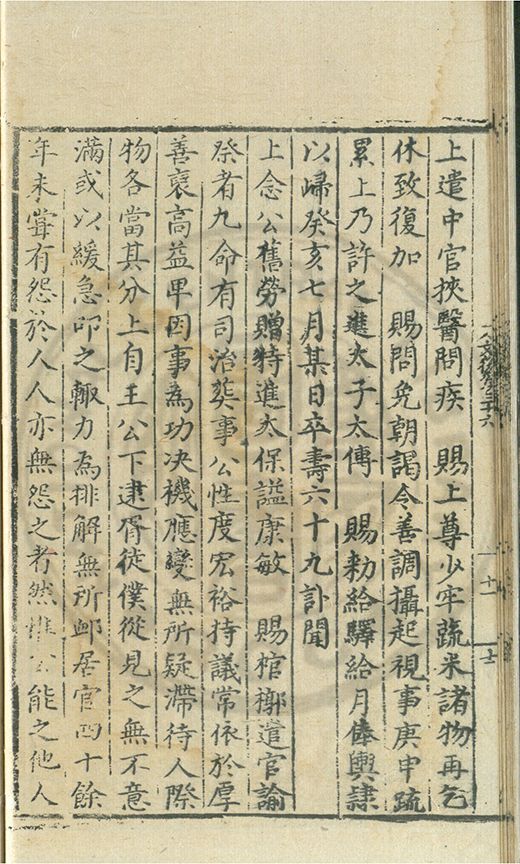 上遣中官挾醫問疾　賜上尊少牢蔬米諸物再乞
休致復加　賜問免朝謁令善調攝起視事庚申疏
累上乃許之進太子太傅　賜勅給驛給月俸輿隸
以歸癸亥七月某日卒壽六十九訃聞
上念公舊勞贈特進太保謚康敏　賜棺槨遣官諭
祭者九命有司治葬事公性度宏裕持議常依於厚
善裒高益卑因事為功决機應變無所疑滯待人際
物各當其分上自王公下逮胥徒僕從見之無不意
滿或以緩急叩之輙力為排解無所䘏居官四十餘
年未嘗有怨於人人亦無怨之者然惟公能之他人